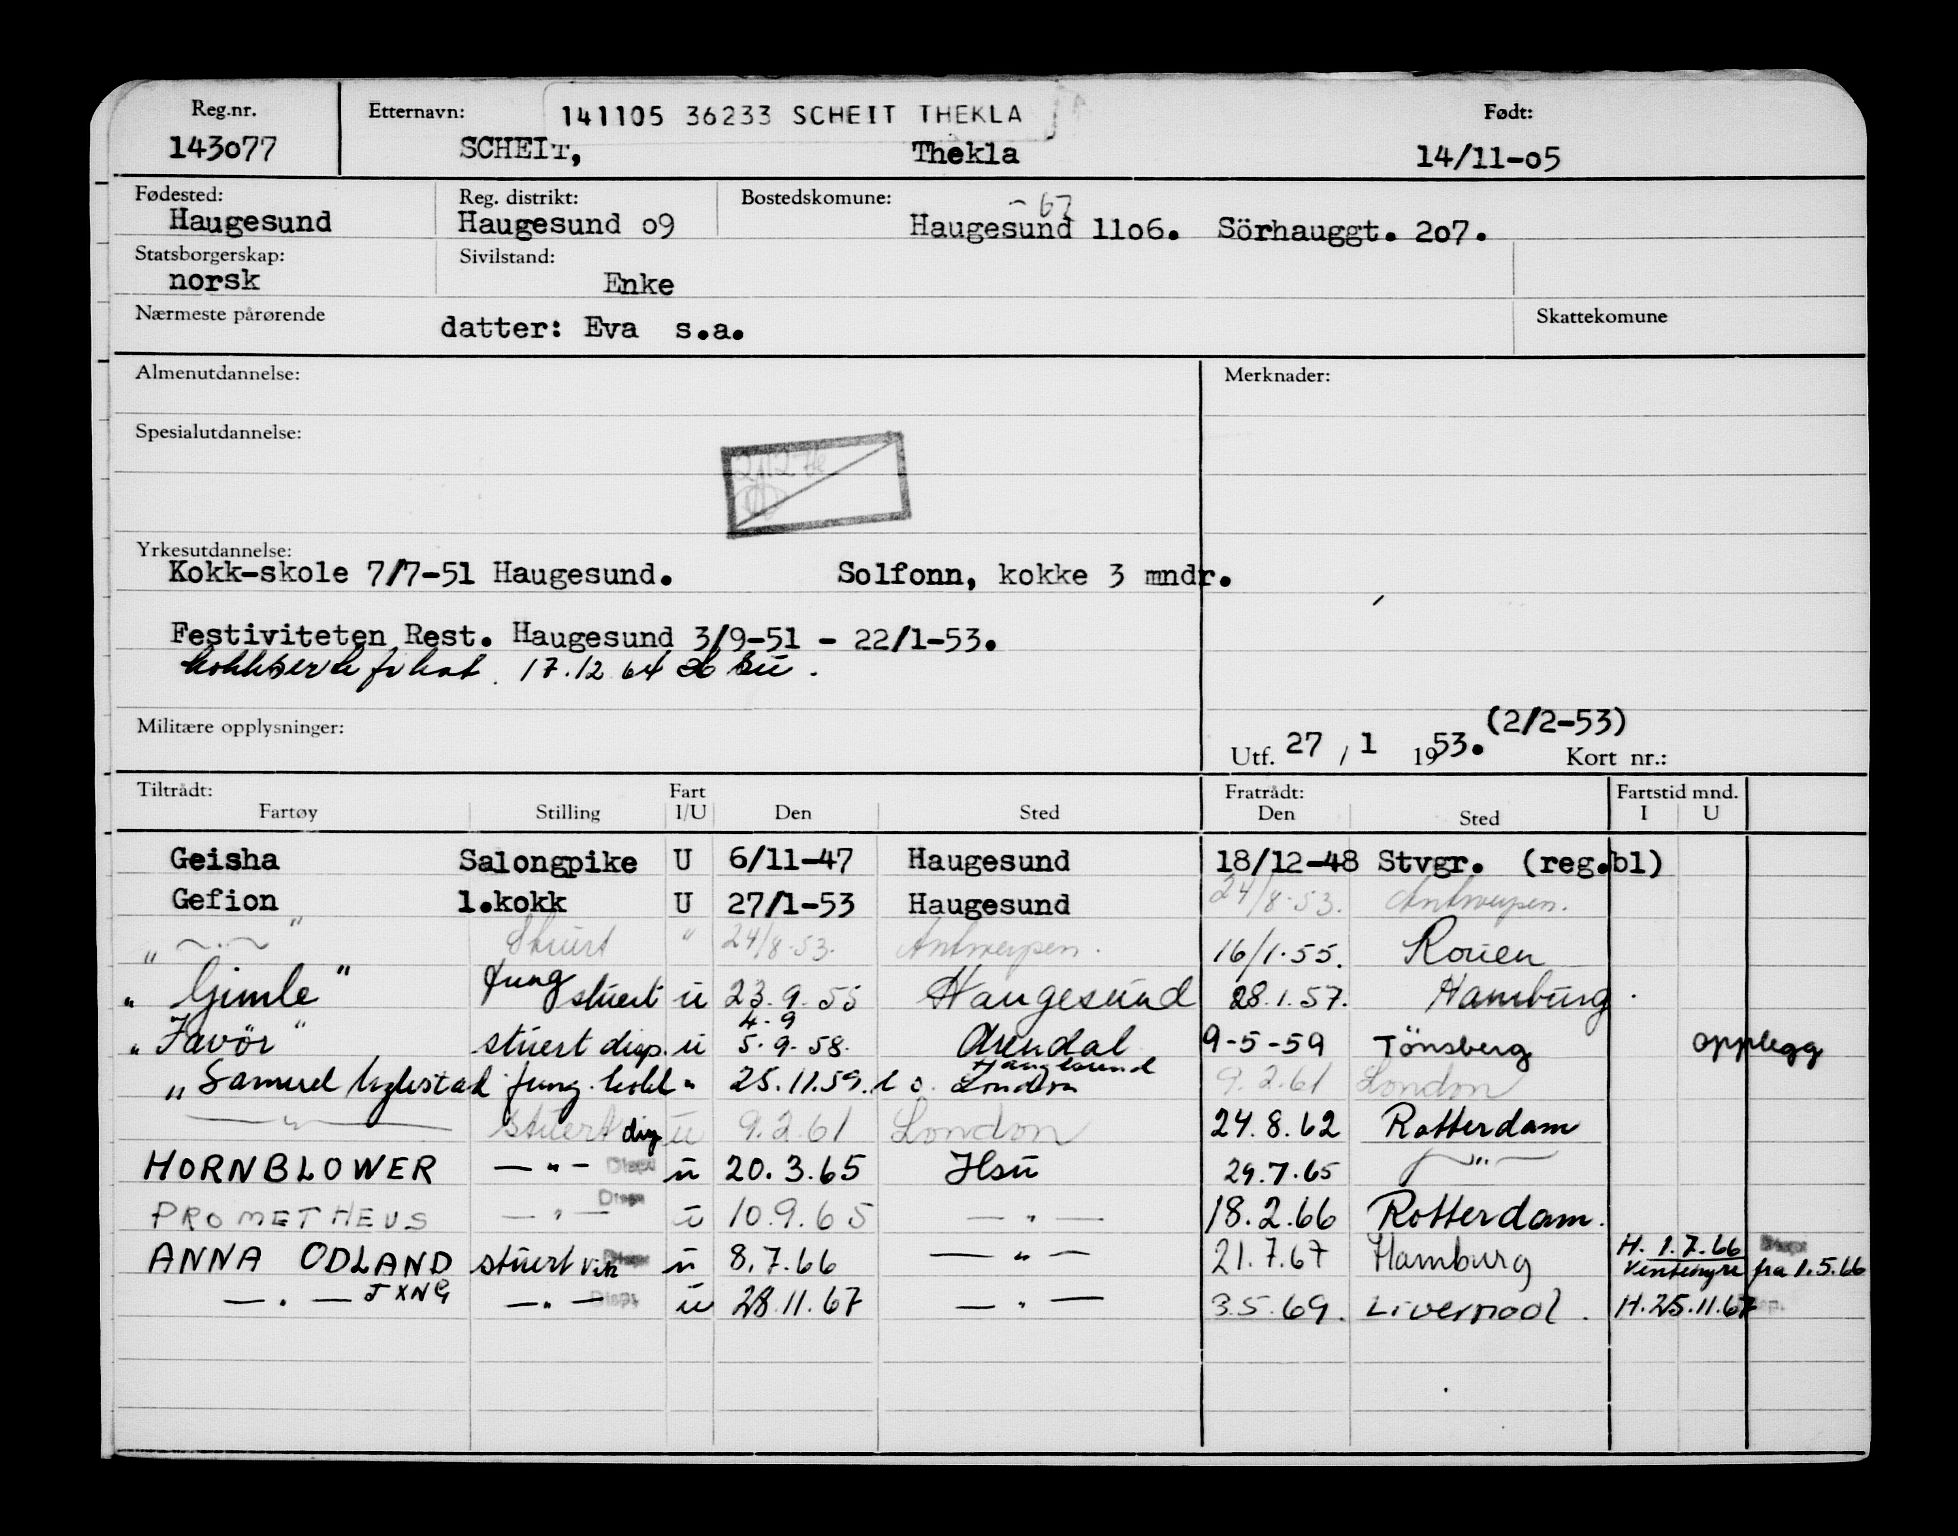 Reg.nr. Etternavn: 141105 36233 SCHEIT THEKLA Født:
143o77 SCHEIT, Thekla 14/11-o5
Fødested: Reg. distrikt: Bostedskomune: - 67
Haugesund Haugesund o9 Haugesund 11o6. Sörhauggt. 2o7.
Statsborgerskap: Sivilstand:
norsk Enke
Nærmeste pårørende datter: Eva s.a. Skattekomune
Almenutdannelse: Merknader:
Spesialutdannelse:
Yrkesutdannelse:
Kokk-skole 7/7-51 Haugesund. Solfonn, kokke 3 mndr.
Festiviteten Rest. Haugesund 3/9-51 - 22/1-53.
17.12 64
Militære opplysninger: (2/2-53)
Utf. 27 / 1 1953. Kort nr.:
Tiltrådt: Fart Fratrådt: Fartstid mnd.
Fartøy Stilling I/U Den Sted Den Sted I U
Geisha Salongpike U 6/11-47 Haugesund 18/12-48 Stvgr. (reg.bl)
Gefion 1.kokk U 27/1-53 Haugesund 24/8-53. Antwerpen.
" — " — " Stuert " 24/8-53. Antwerpen. 16/1-55. Rouen
" Gimle " Jung stuert u 23.9.55 Haugesund 28.1.57. Hamburg.
4-9
" Favör " stuert disp. u 5.9.58. Arendal 9-5-59 Tönsberg opplegg
Haugesund
" Samuel Ugelstad jung. kokk " 25.11.59. London 9.2.61 London
— " — stuert disp u 9.2.61 London 24.8.62 Rotterdam
HORNBLOWER — " — Disp u 20.3.65 Hsu 29.7.65 — " —
PROMETHEUS — " — Disp u 10.9.65 — " — 18.2.66 Rotterdam.
ANNA ODLAND stuert vik Disp u 8.7.66 — " — 21.7.67 Hamburg H. 1.7.66 Disp
Ventehyre fra 1.5.66
— " — JXNG — " — Disp. u 28.11.67 — " — 3.5.69. Liverpool. H.25.11.67 Disp.